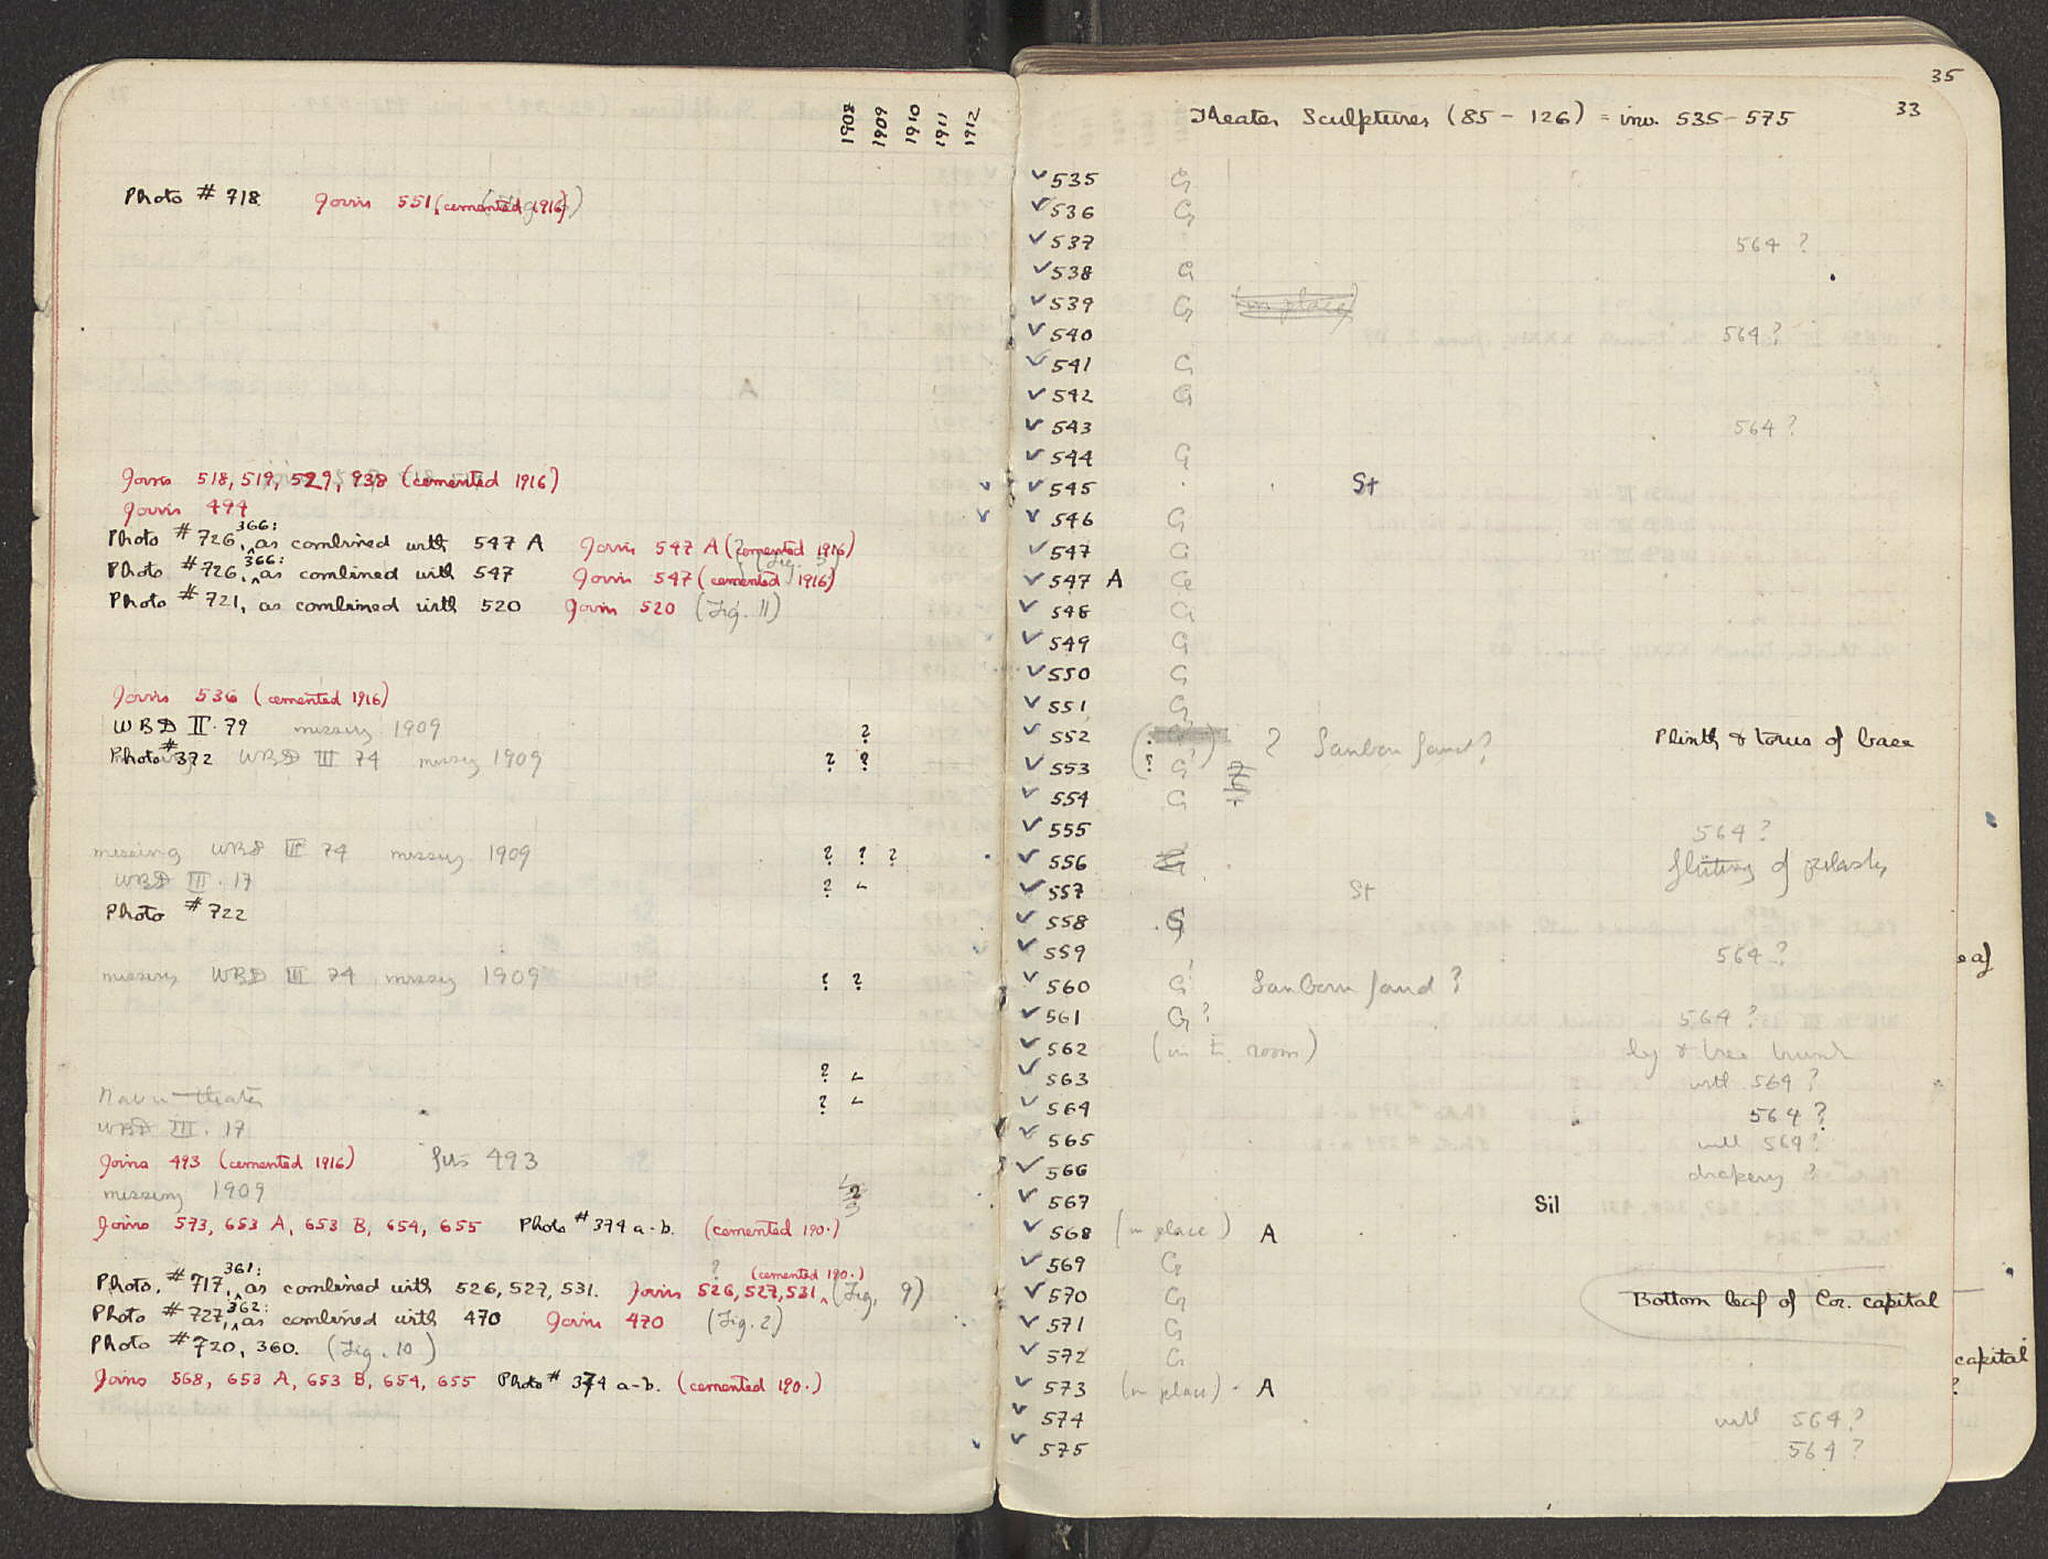 1908 1909 1910 1911 1912
Photo # 718 Joins 551 (cemented 1916)
Joins 518, 519, 529, 938 (cemented 1916)
Joins 494
Photo # 726, 366: as combined with 547 A Joins 547 A (cemented 1916)
Photo # 726, 366: as combined with 547 Joins 547 (cemented 1916)
Photo # 721, as combined with 520 Joins 520 (Fig. 11)
Joins 536 (cemented 1916)
WBD II. 79 missing 1909 ?
Photo # 372 WBD III 74 missing 1909 ? ?
missing WBD III 74 missing 1909 ? ? ?
WBD III. 17 ?
Photo # 722
missing WBD III 74 missing 1909 ? ?
?
?
WBD III. 17
Joins 493 (cemented 1916) fits 493
missing 1909 ?
Joins 573, 653 A, 653 B, 654, 655 Photo # 374 a-b. (cemented 190.)
? (cemented 190.)
Photo. # 717, 361: as combined with 526, 527, 531. Joins 526, 527, 531, (Fig. 9)
Photo # 727, 362: as combined with 470 Joins 470 (Fig. 2)
Photo # 720, 360. (Fig. 10)
Joins 568, 653 A, 653 B, 654, 655 Photo # 374 a-b. (cemented 190.)
35
33
Theater Sculptures (85 - 126) = inv. 535-575
✓ 535 G
✓ 536 G
✓ 537 564 ?
✓ 538 G
✓ 539 G (in place)
✓ 540 564 ?
✓ 541 G
✓ 542 G
✓ 543 564 ?
✓ 544 G
✓ ✓ 545 St
✓ ✓ 546 G
✓ 547 G
✓ 547 A G
✓ 548 G
✓ 549 G
✓ 550 G
✓ 551 G
✓ 552 (? ) ? Sanborn fand? Plinth & torus of base
✓ 553 (? G
✓ 554 G
✓ 555 564 ?
✓ 556 G fluting of pilaster
✓ 557 St
✓ 558 G
✓ ✓ 559 564 ?
✓ 560 G Sanborn fand ?
✓ 561 G ? 564 ?
✓ 562 (in room) leg & tree trunk
✓ 563 with 564 ?
✓ 564 564 ?
✓ 565 with 564 ?
✓ 566 drapery ?
✓ 567 Sil
✓ 568 (in place) A
✓ 569 G
✓ 570 G Bottom leaf of Cor. capital
✓ 571 G
✓ 572 G
✓ 573 (in place) - A
✓ 574 with 564 ?
✓ ✓ 575 564 ?
eaf
capital
?